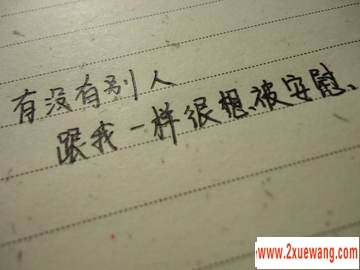 有没有别人
跟我一样很想被安慰、
www.2xuewang.com